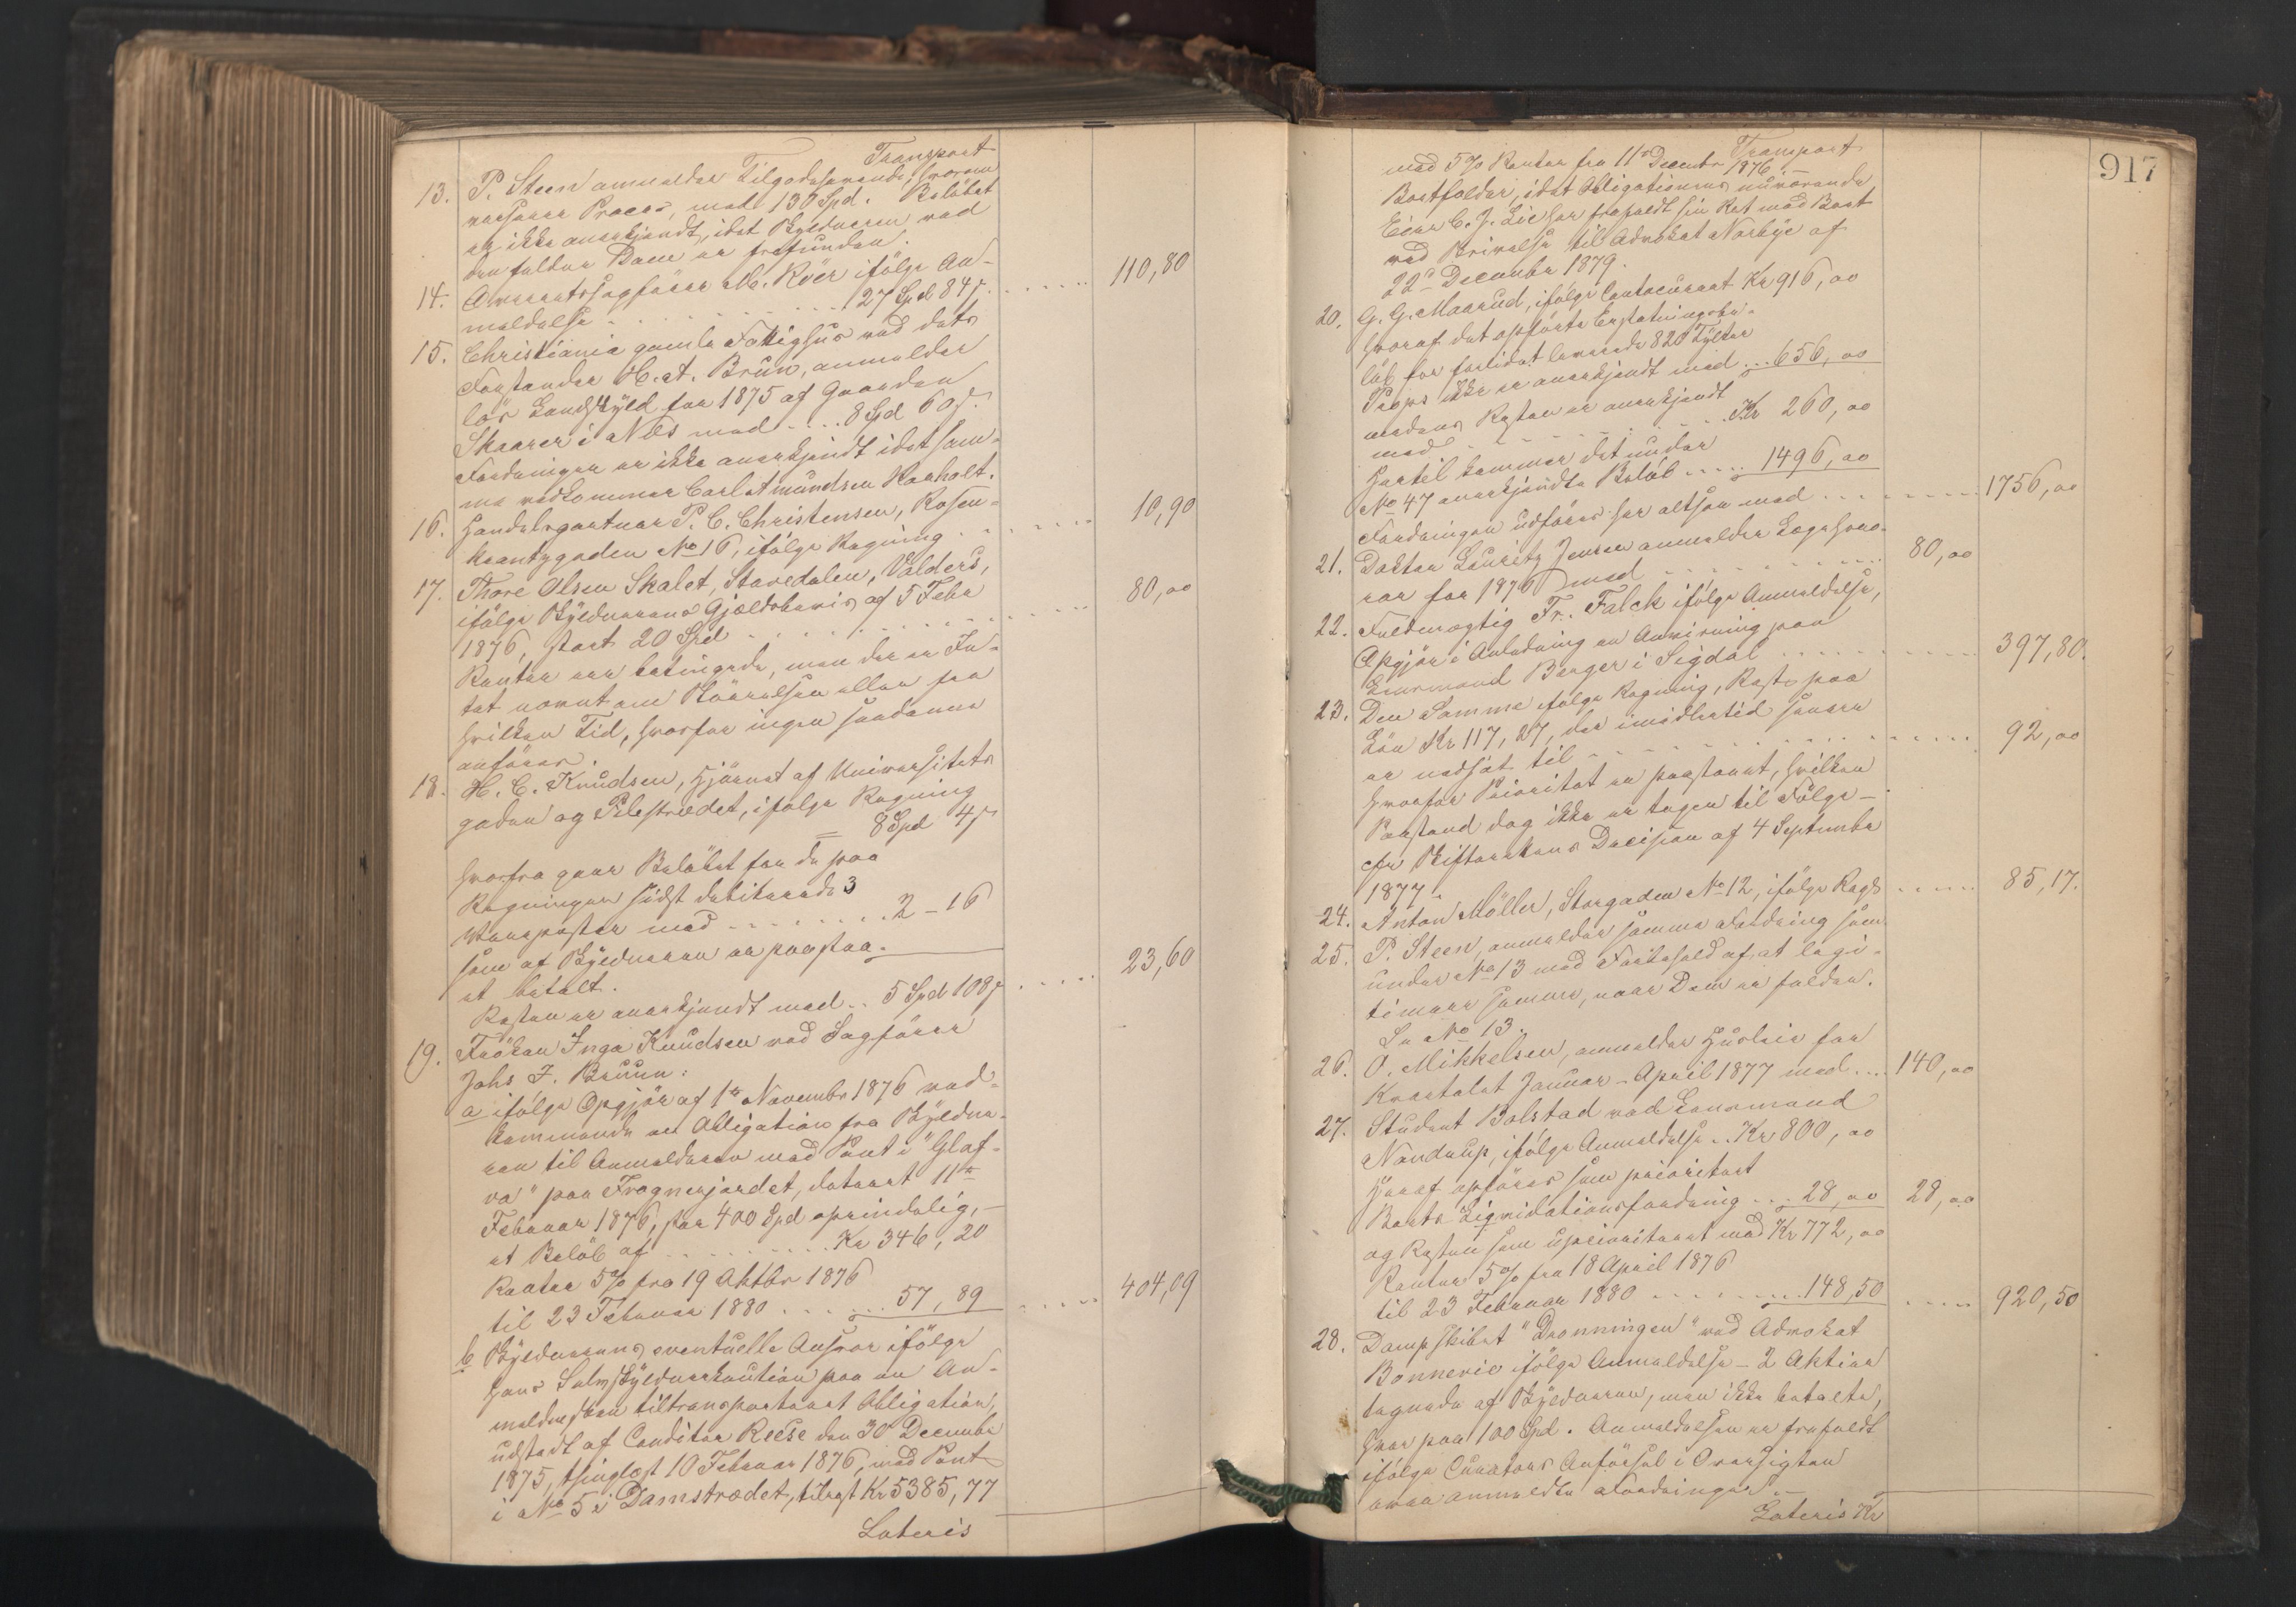 Transport
13. P. Steen anmelder Tilgodehavende, hvorom
verserer Proces, med 130 Spd. Beløbet
er ikke anerkjendt, idet Skyldneren ved
den faldne Dom er frifunden.
14. Overretssagfører M. Röer ifølge An-
meldelse . . . 27 Spd 84 s. . . . 110,80
15. Christiania gamle Fattighus ved dets
Forstander H. A. Brun, anmelder
løs Landskyld for 1875 af Gaarden
Skaarer i Næs med . . . 8 Spd 60 s.
Fordringen er ikke anerkjendt idet sam-
me vedkommer Carl Amundsen Haaholt.
16. Handelsgartner P. C. Christensen, Rosen-
krantzgaden No 16, ifølge Regning . . . 10,90
17. Thore Olsen Skalet, Stavedalen, Valders,
ifølge Skyldnerens Gjældsbevis af 5 Febr
1876, stort 20 Spd . . . 80,00
Renter er betingede, men der er In-
tet nævnt om Størrelsen eller fra
hvilken Tid, hvorfor ingen saadanne
anføres.
18. H. C. Knudsen, Hjørnet af Universitets
gaden og Pilestrædet, ifølge Regning
= 8 Spd 4 s
hvorfra gaar Beløbet for de paa
Regningen sidst debiterede 3
Vareposter med . . . 2 - 16
som af Skyldneren er paastaa-
et betalt.
Resten er anerkjendt med . . 5 Spd 108 s . . . 23,60
19. Frøken Inga Knudsen ved Sagfører
Johs F. Bruun:
a ifølge Opgjør af 1ste Novembr 1876 ved-
kommende en Obligation fra Skyldne-
ren til Anmelderen med Pant i "Glas-
vo" paa Frognerjordet, dateret 11te
Februar 1876, stor 400 Spd oprindelig, -
et Beløb af . . . Kr 346,20
Renter 5% fra 19 Oktbr 1876
til 23 Februar 1880 . . . 57,89 . . . 404,09
b Skyldnerens eventuelle Ansvar ifølge
hans Selvskyldnerkaution paa en An-
meldersken tiltransporteret Obligation,
udstedt af Conditor Reese den 30 Decembr
1875, thinglæst 10 Februar 1876, med Pant
i No 5 i Damstrædet, tilrest Kr 5385,77
Lateris
917
Transport
med 5% Renter fra 11te Decembr 1876. -
Bortfalder, idet Obligationens nuværende
Eier C. J. Lie har frafaldt sin Ret mod Boet
ved Skrivelse til Advokat Nørbye af
22de Decembr 1879.
20. G. G. Maarud, ifølge Contocurant Kr 916,00
hvoraf det opførte Erstatningsbe-
løb for forlidet leverede 820 Tylter
Props ikke er anerkjendt med . . . 656,00
medens Resten er anerkjendt
med . . . Kr 260,00
Hertil kommer det under
No 47 anerkjendte Beløb . . . 1496,00
Fordringen udføres her altsaa med . . . 1756,00
21. Doktor Lauritz Jensen anmelder Lægehono-
rar for 1876 med . . . 80,00
22. Fuldmægtig Fr. Falck ifølge Anmeldelse,
Opgjør i Anledning en Anvisning paa
Lensmand Berger i Sigdal . . . 397,80.
23. Den Samme ifølge Regning, Rest paa
Løn Kr 117,87, der imidlertid senere
er nedsat til . . . 92,00
hvorfor Prioritet er paastaaet, hvilken
Paastand dog ikke er tagen til Følge -
cfr Skifterettens Decision af 4 Septembr
1877.
24. Anton Møller, Storgaden No 12, ifølge Regn. . . . 85,17.
25. P. Steen, anmelder samme Fordring som
under No 13 med Forbehold af at legi-
timere samme, naar Dom er falden.
Se No 13.
26. O. Mikkelsen, anmelder Husleie for
Kvartalet Januar - April 1877 med . . . 140,00
27. Student Bolstad ved Lensmand
Nandrup, ifølge Anmeldelse . . Kr 800,00
Heraf opføres som prioriteret
Boets Liqvidationsfordring . . . 28,00 28,00
og Resten som uprioriteret med Kr 772,00
Renter 5% fra 18 April 1876
til 23 Februar 1880 . . . 148,50 . . . 920,50
28. Dampskibet "Dronningen" ved Advokat
Bonnevie ifølge Anmeldelse - 2 Aktier
tegnede af Skyldneren, men ikke betalte,
hver paa 100 Spd. Anmeldelsen er frafaldt
ifølge Curators Anførsel i Oversigten
over anmeldte Fordringer. -
Lateris Kr